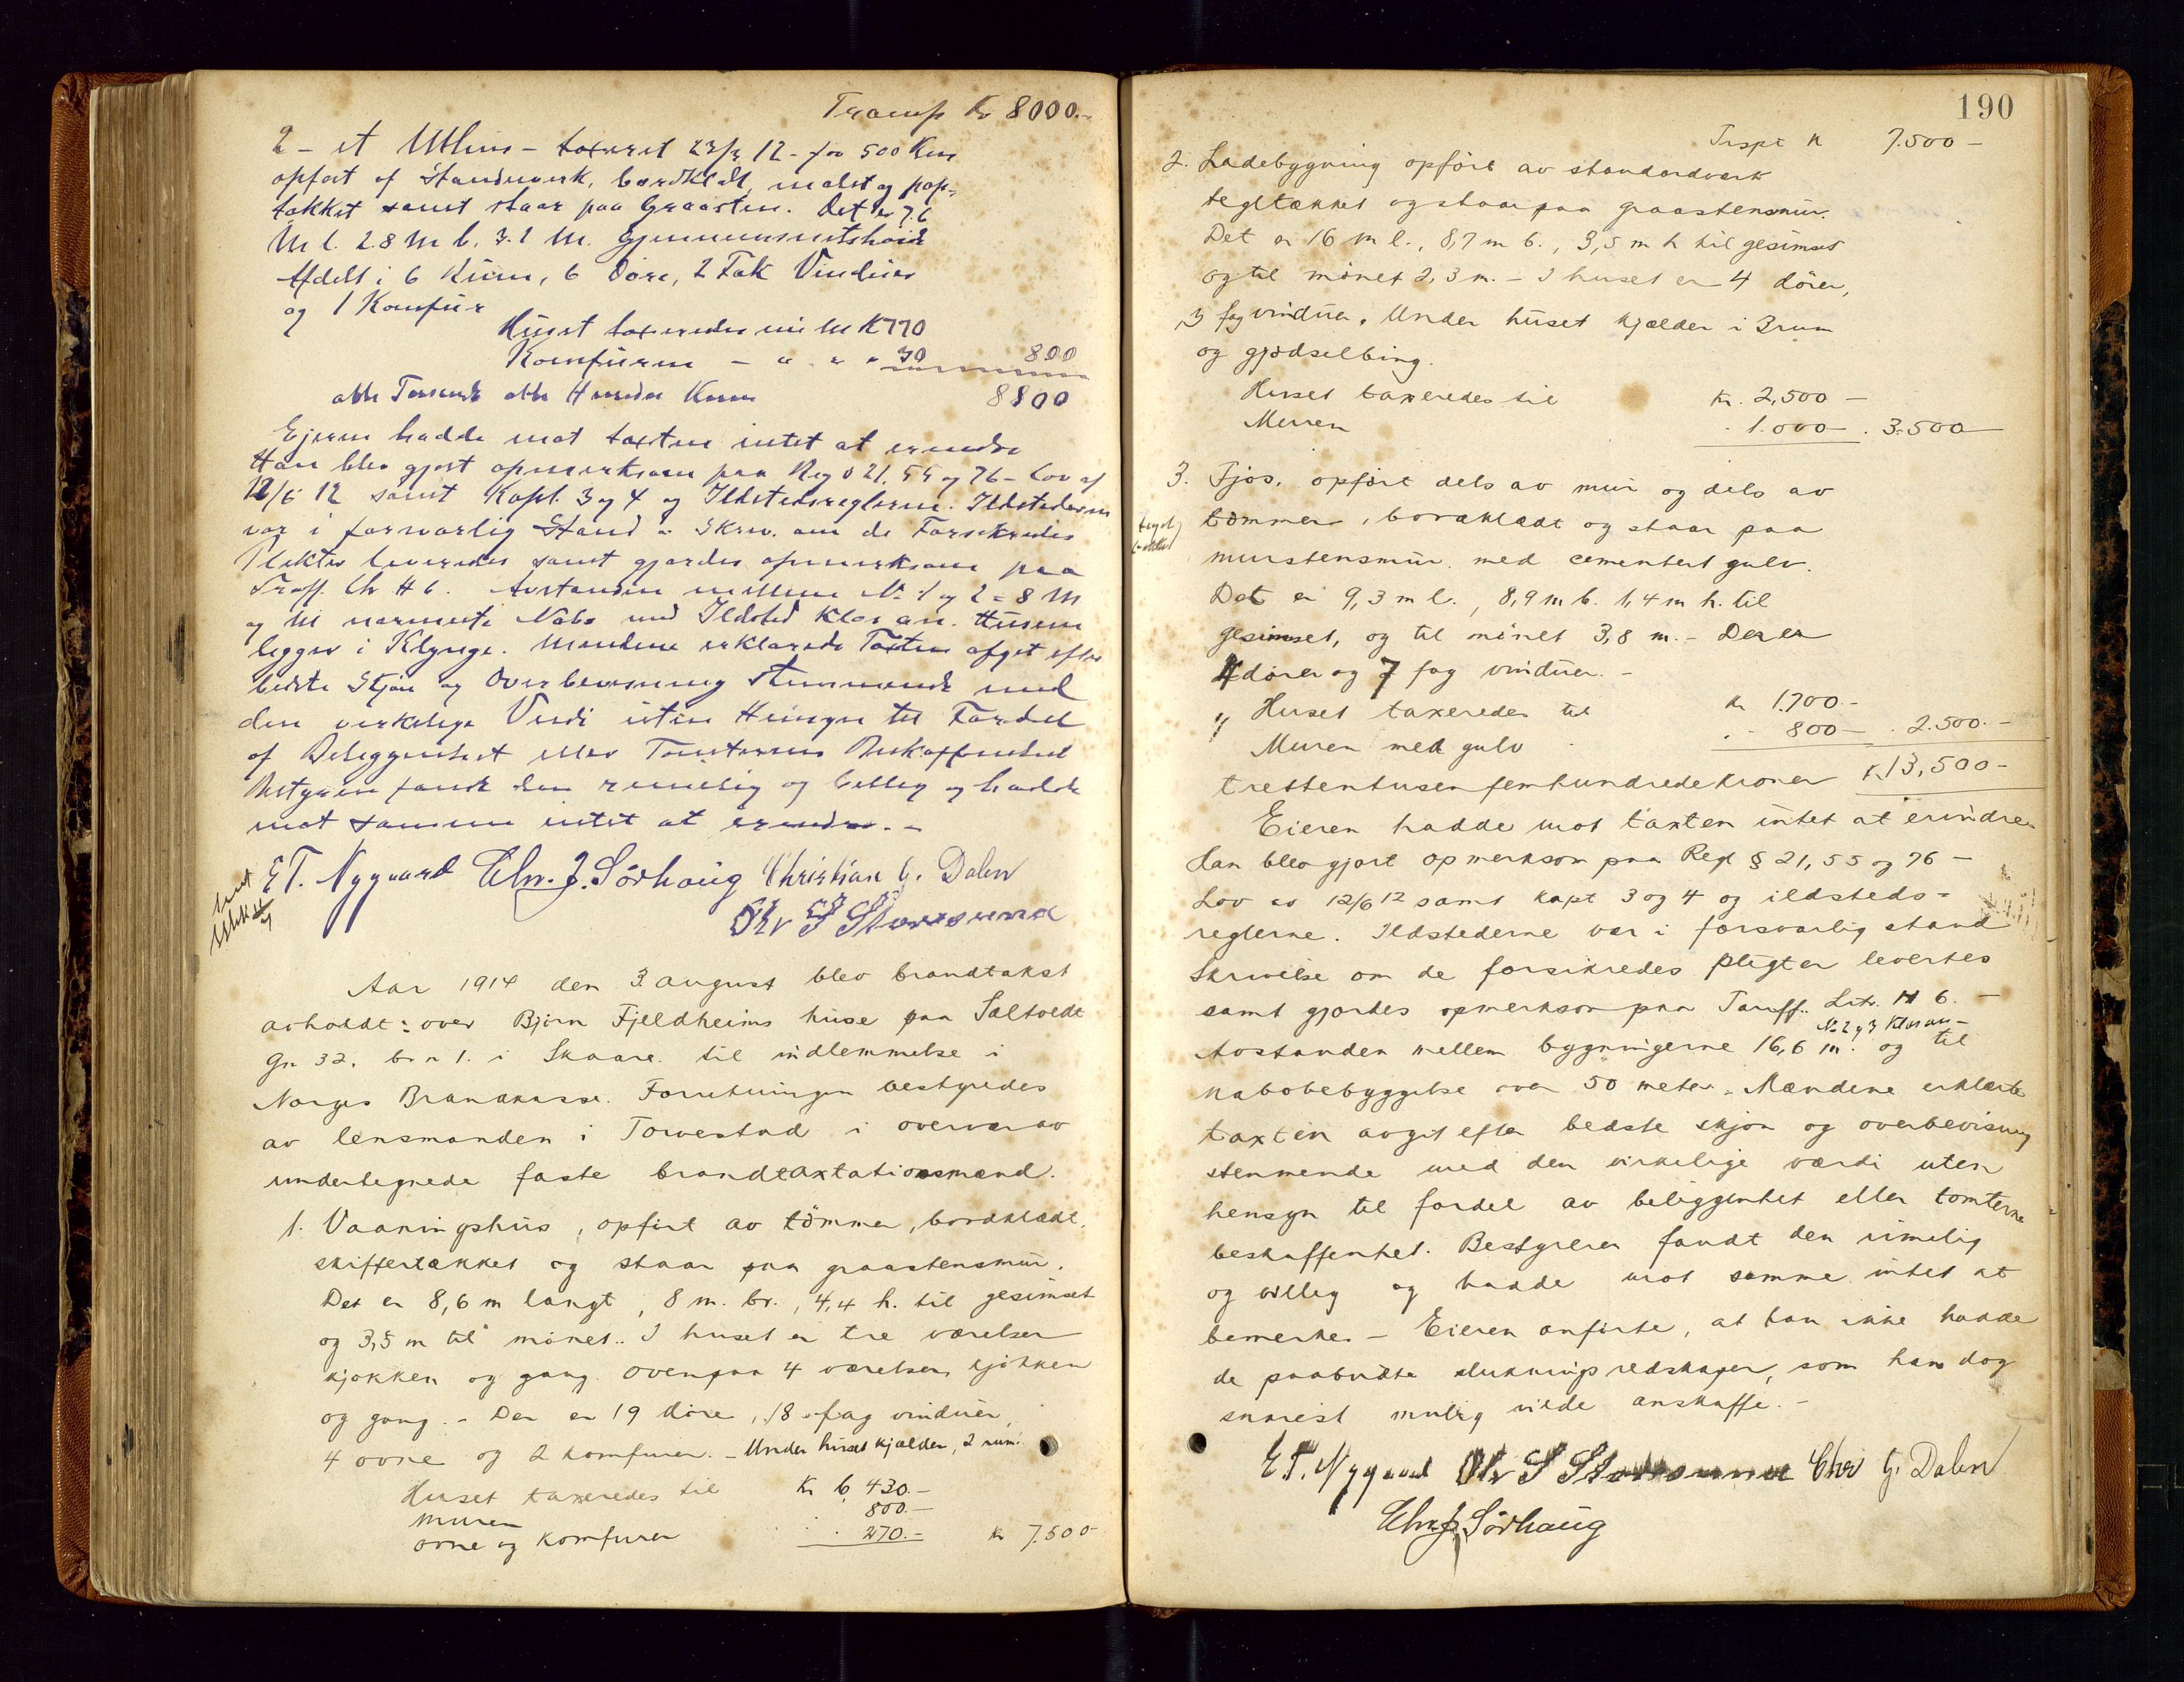 Transp Kr 8000.-
2 - et Uthus - taxeret 23/3 12 - for 500 Kr
opført af Standverk, bordkledt, malet og pap-
takket samt staar paa Graasten. Det er 7.6
M l. 2.8 M b. 3.1 M. Gjennemsnitshøide
Afdelt i 6 Rum, 6 Døre, 2 Fak Vinduer
og 1 Komfur
Huset taxeredes til Kr 770
Komfuren - " " " 30 800
otte Tusende otte Hundre Kroner 8800
Ejeren hadde mot taxten intet at erindre
Han blev gjort opmerksom paa Reg § 21, 55 og 76 - Lov af
12/6 12 samt Kapt. 3 og 4 og Ildstedsreglerne. Ildstederne
var i forsvarlig Stand - Skriv. om de Forsikredes
Plikter leveredes samt gjordes opmerksom paa
Traff. Ltr H 6. Avstanden mellem No 1 og 2 = 8 M
og til nærmeste Nabo med Ildsted Klas an. Husene
ligger i Klynge. Mendene erklærede Taxten afgit efter
bedste Skjøn og Overbevisning stemmende med
den virkelige Verdi uten Hensyn til Fordel
af Beliggenhet eller Tomternes Beskaffenhed
Bestyren fandt den rimelig og billig og hadde
mot samme intet at erindre. -
E T. Nygaard Chr. J. Sørhaug Christian G. Dalen
Aar 1914 den 3. august blev brandtakst
avholdt: over Bjørn Fjeldheims huse paa Saltvedt
gn 32. br n 1. i Skaare til indlemmelse i
Norges Brandkasse. Forretningen bestyredes
av lensmanden i Torvestad i overvær av
undertegnede faste brandtaxtationsmænd.
1. Vaaningshus, opført av tømmer, bordklædt,
skiffertækket og staar paa graastensmur.
Det er 8,6 m langt, 8 m. br., 4,4 h. til gesimset
og 3,5 m til mønet.. I huset er tre værelser
kjøkken og gang. Ovenpaa 4 værelser, kjøkken
og gang. - Der er 19 døre, 18 fag vinduer,
4 ovne og 2 komfurer. - Under huset kjælder, 2 rum.
Huset taxeredes til Kr 6 430.-
Muren 800.-
ovne og komfurer 270.- Kr 7.500-
190
Trspt K 7.500 -
2. Ladebygning opført av standardverk
tegltækket og staar paa graastensmur.
Det er 16 m l., 8,7 m b., 3,5 m h til gesimset
og til mønet 2,3 m. - I huset er 4 dører,
3 fag vinduer. Under huset kjælder i 3 rum
og gjødselbing.
Huset taxeredes til Kr. 2,500 -
Muren 1.000 - . 3.500
3. Fjøs, opført dels av mur og dels av
tegltækket
tømmer, bordklædt og staar paa
murstensmur med cementert gulv.
Det er 9,3 m l., 8,9 m b. 1,4 m h. til
gesimset, og til mønet 3,8 m. - Der er
4 dører og 7 fag vinduer. -
Huset taxeredes til Kr 1.700.-
Muren med gulv 800 - . 2.500. -
trettentusenfemhundredekroner K. 13,500 -
Eieren hadde mot taxten intet at erindre
Han blev gjort opmerksom paa Regl § 21, 55 og 76 -
Lov av 12/6 12 samt kapt 3 og 4 og ildsteds-
reglerne. Ildstederne var i forsvarlig stand
Skrivelse om de forsikredes pligter levertes
samt gjordes opmerksom paa Tariff. Litr. H 6. -
No 2 og 3 Klas an -
Avstanden mellem bygningerne 16,6 m. og til
nabobebyggelse over 50 meter. Mændene erklærte
taxten avgit efter bedste skjøn og overbevisning
stemmende med den virkelige værdi uten
hensyn til fordel av beliggenhet eller tomternes
beskaffenhet. Bestyreren fandt den rimelig
og billig og hadde mot samme intet at
bemerke. - Eieren anførte, at han ikke hadde
de paabudte slukningsredskaper, som han dog
snarest mulig vilde anskaffe. -
E T. Nygaard Chr G. Dalen
Chr. J. Sørhaug